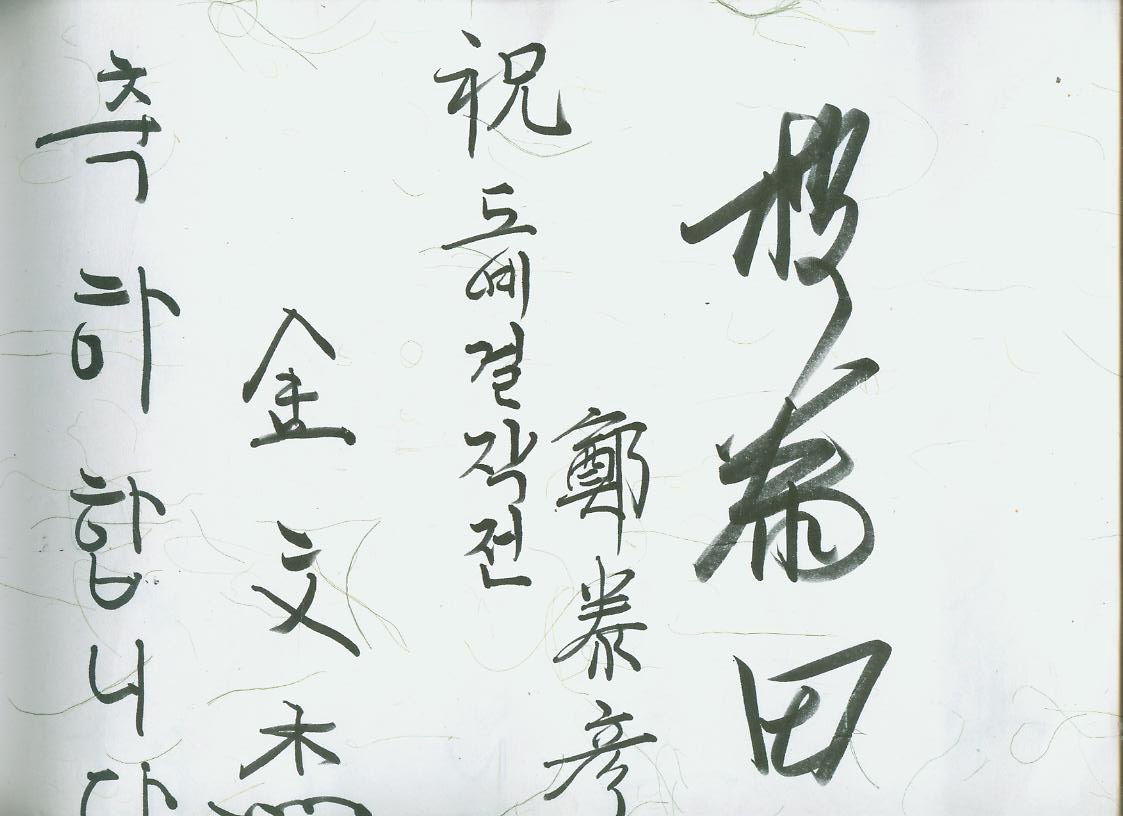 田
鄭泰彦
祝도예결작전
金文杰
축하합니다